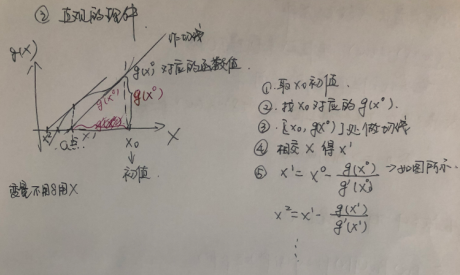 ② 直观的理解
g(x)
作切线
g(x⁰) 对应的函数值
g(x¹)
g(x⁰)
x² a点 x¹ x₀ X
初值
变量不用θ用X
①. 取x₀初值.
②. 找x₀对应的g(x⁰).
③. [x₀, g(x⁰)]处做切线
④ 相交X 得x¹
⑤ x¹ = x⁰ - g(x⁰)/g'(x⁰) → 如图所示.
x² = x¹ - g(x¹)/g'(x¹)
⋮